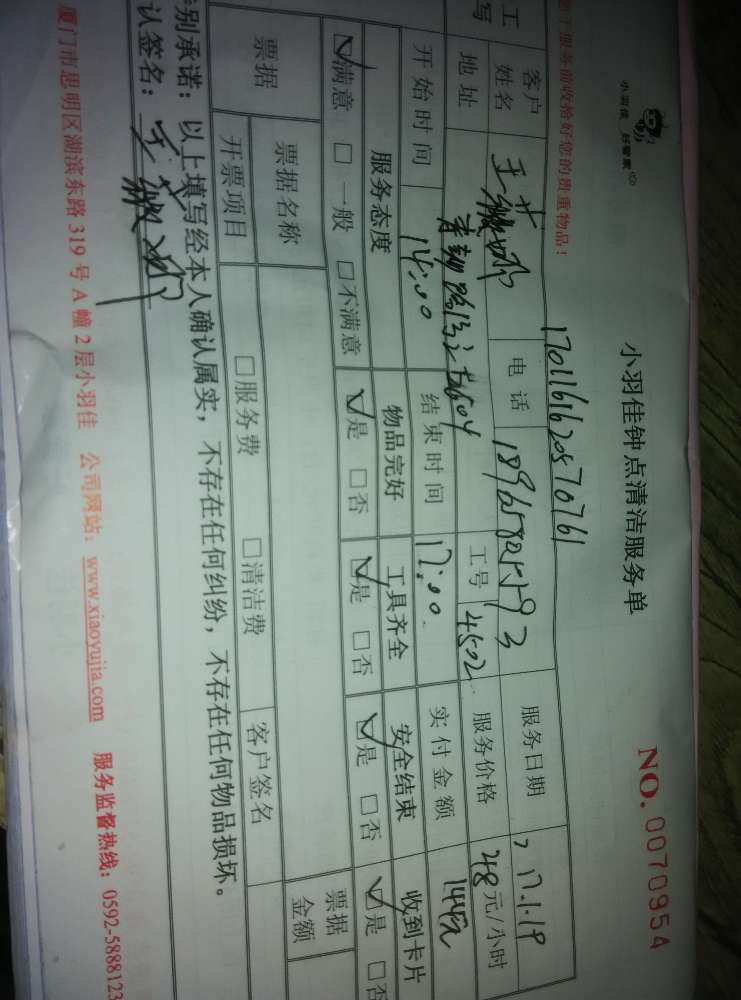 小羽佳 好管家
小羽佳钟点清洁服务单
NO. 0070954
于服务前收拾好您的贵重物品!
1701161620570761
客户姓名 电话 18965802593 服务日期 17.1.19
地址 工号 4502 服务价格 48元/小时
开始时间 14:00 结束时间 17:00 实付金额 144元
服务态度 物品完好 工具齐全 安全结束 收到卡片
☑满意 □一般 □不满意 ☑是 □否 ☑是 □否 ☑是 □否 ☑是 □否
票据 票据名称 票据金额
开票项目 □服务费 □清洁费 客户签名
别承诺:以上填写经本人确认属实,不存在任何纠纷,不存在任何物品损坏。
认签名:
厦门市思明区湖滨东路 319 号 A 幢 2 层小羽佳 公司网站:www.xiaoyujia.com 服务监督热线:0592-5888123